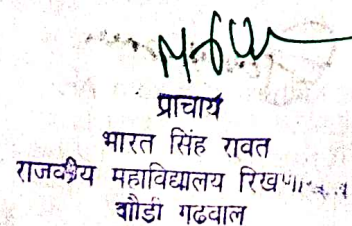 प्राचार्य
भारत सिंह रावत
राजकीय महाविद्यालय
पौडी गढवाल